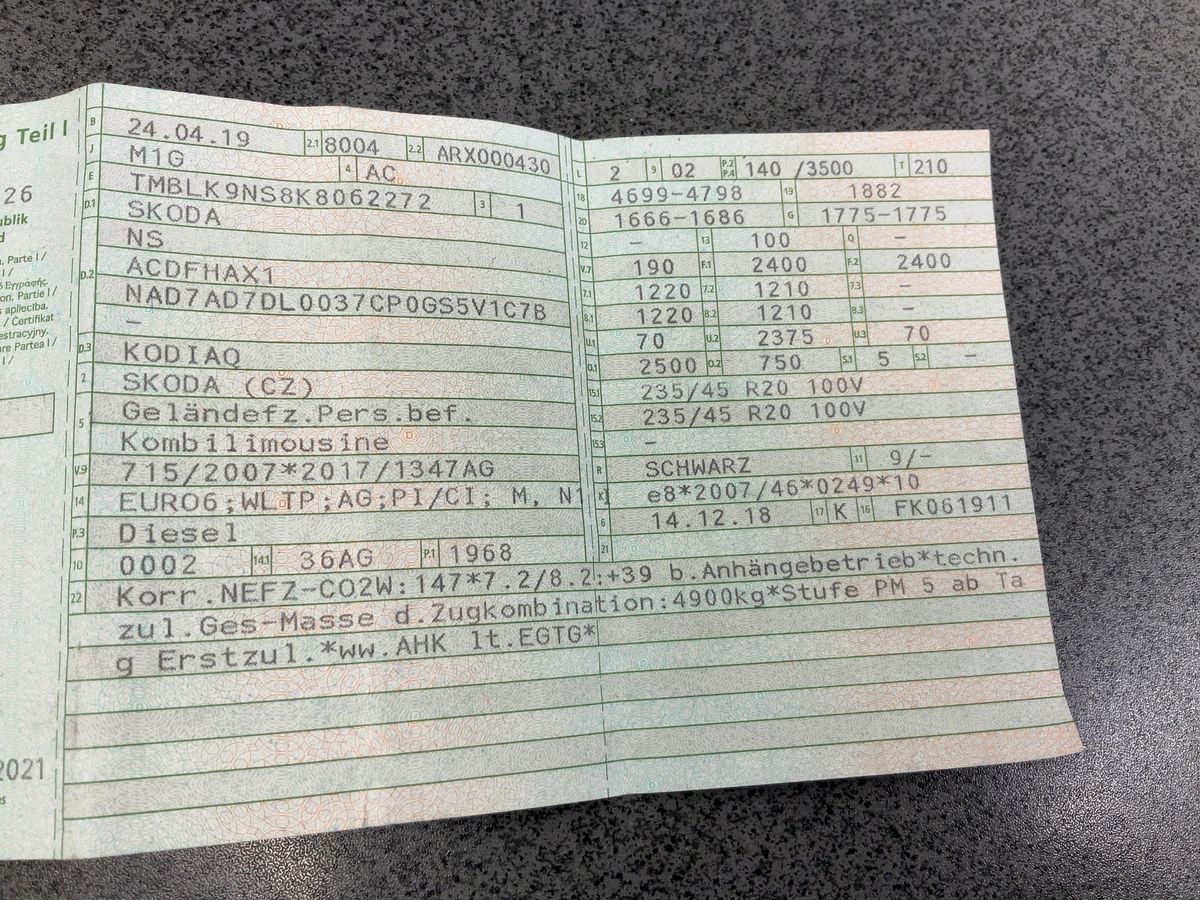 g Teil I
26
blik
d
. Parte I /
I /
Εγγραφής
on. Partie I /
s apliecība.
/ Certifikat
estracyjny.
re Partea I /
I /
2021
B 24.04.19 2.1 8004 2.2 ARX000430
J M1G 4 AC
E TMBLK9NS8K8062272 3 1
D.1 SKODA
NS
D.2 ACDFHAX1
NAD7AD7DL0037CP0GS5V1C7B
–
D.3 KODIAQ
2 SKODA (CZ)
5 Geländefz.Pers.bef.
Kombilimousine
V.9 715/2007*2017/1347AG
14 EURO6;WLTP;AG;PI/CI; M, N1
P.3 Diesel
10 0002 14.1 36AG P.1 1968
L 2 9 02 P.2 P.4 140 /3500 T 210
18 4699-4798 19 1882
20 1666-1686 G 1775-1775
12 – 13 100 Q –
V.7 190 F.1 2400 F.2 2400
7.1 1220 7.2 1210 7.3 –
8.1 1220 8.2 1210 8.3 –
U.1 70 U.2 2375 U.3 70
O.1 2500 O.2 750 S.1 5 S.2 –
15.1 235/45 R20 100V
15.2 235/45 R20 100V
15.3 –
R SCHWARZ 11 9/–
K e8*2007/46*0249*10
6 14.12.18 17 K 16 FK061911
21
22 Korr.NEFZ-CO2W:147*7.2/8.2:+39 b.Anhängebetrieb*techn.
zul.Ges-Masse d.Zugkombination:4900kg*Stufe PM 5 ab Ta
g Erstzul.*ww.AHK lt.EGTG*